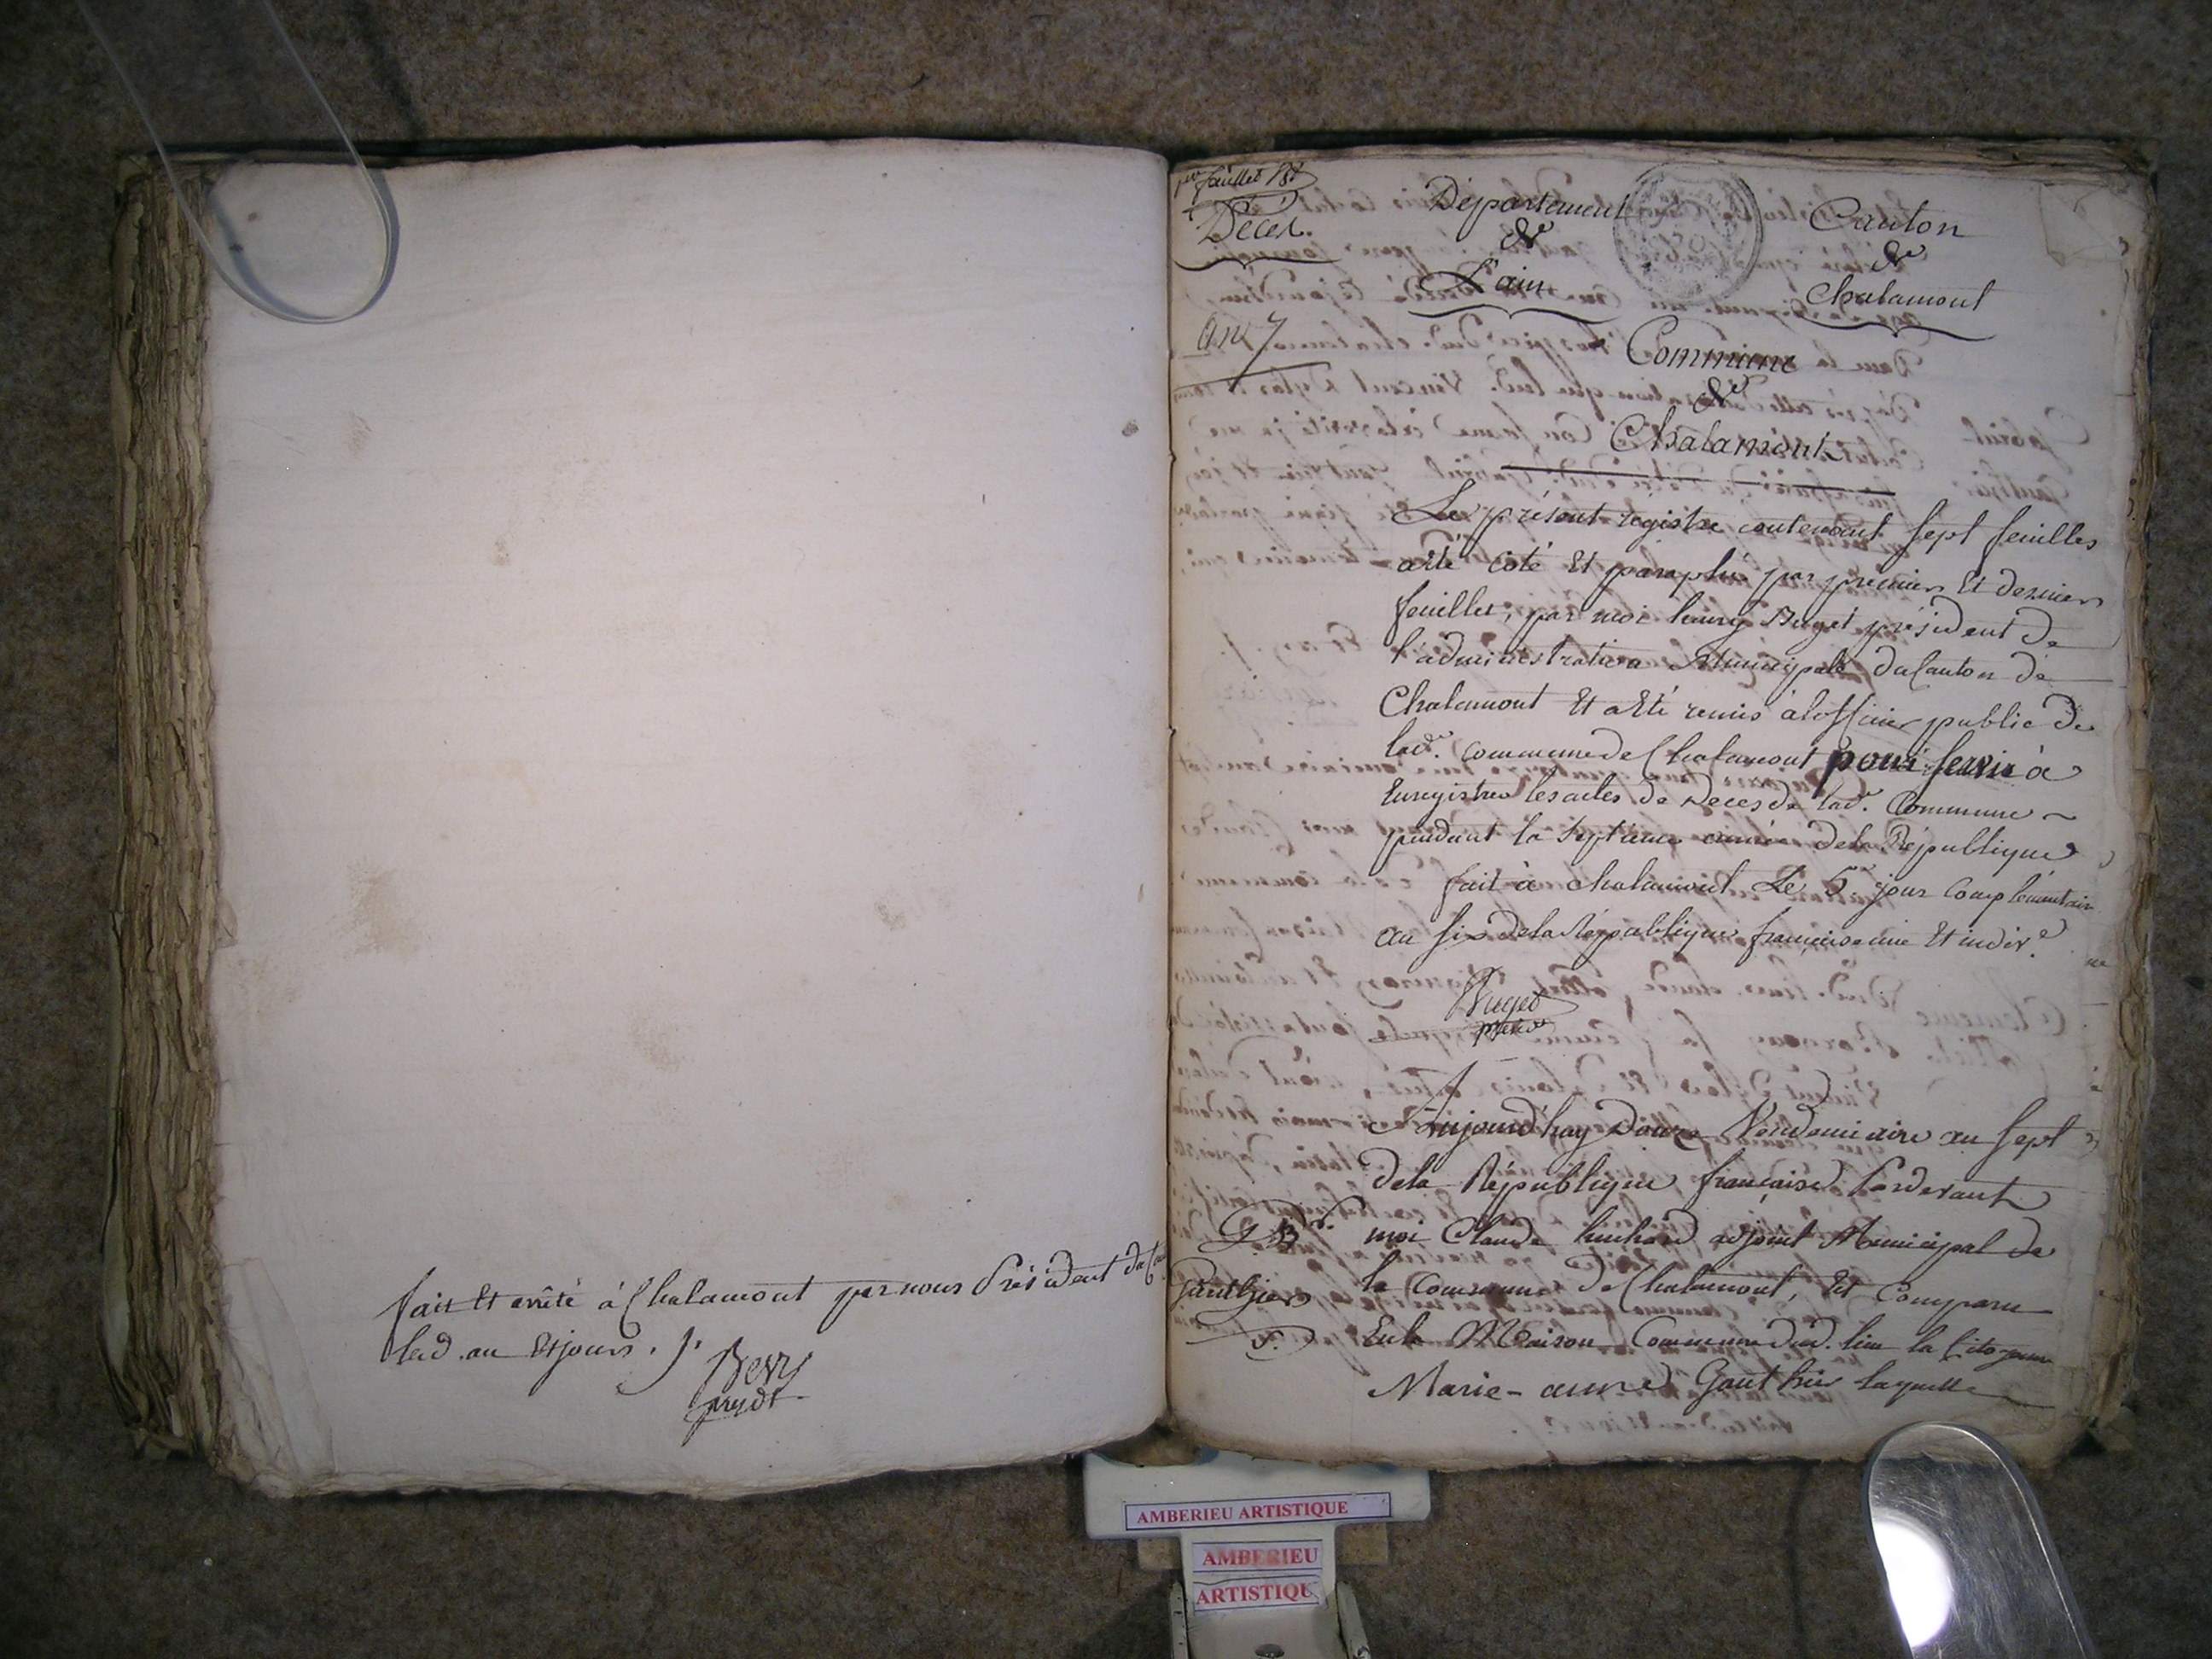 fait Et arrêté à Chalamont par nous Président du
led. an Et jours.
prsdt
1er feuillet
Décès.
an 7
Département
de
L'ain
Canton
de
Chalamont
Commune
de
Chalamont
Le présent régistre contenant sept feuilles
a été coté Et paraphé par premier Et dernier
feuillet, par moi henry Buget président de
l'administration Municipale du Canton de
Chalamont Et a Eté remis à l'officier public de
lade. commune de Chalamont pour servir à
Enregistrer les actes de Deces de lade. Commune
pendant la septieme année de la République
fait à chalamont Le 5e jour complémentaire
an six de la République française une Et indive.
Buget
présidt
Aujourd'huy Douze Vendemiaire an sept
de la République française pardevant
moi Claude adjoint Municipal de
la Commune de Chalamont, Est Comparu
En la Maison Commune dud. lieu la Citoyenne
Marie-anne Gauthier laquelle
Gauthier
AMBERIEU ARTISTIQUE
AMBERIEU
ARTISTIQU